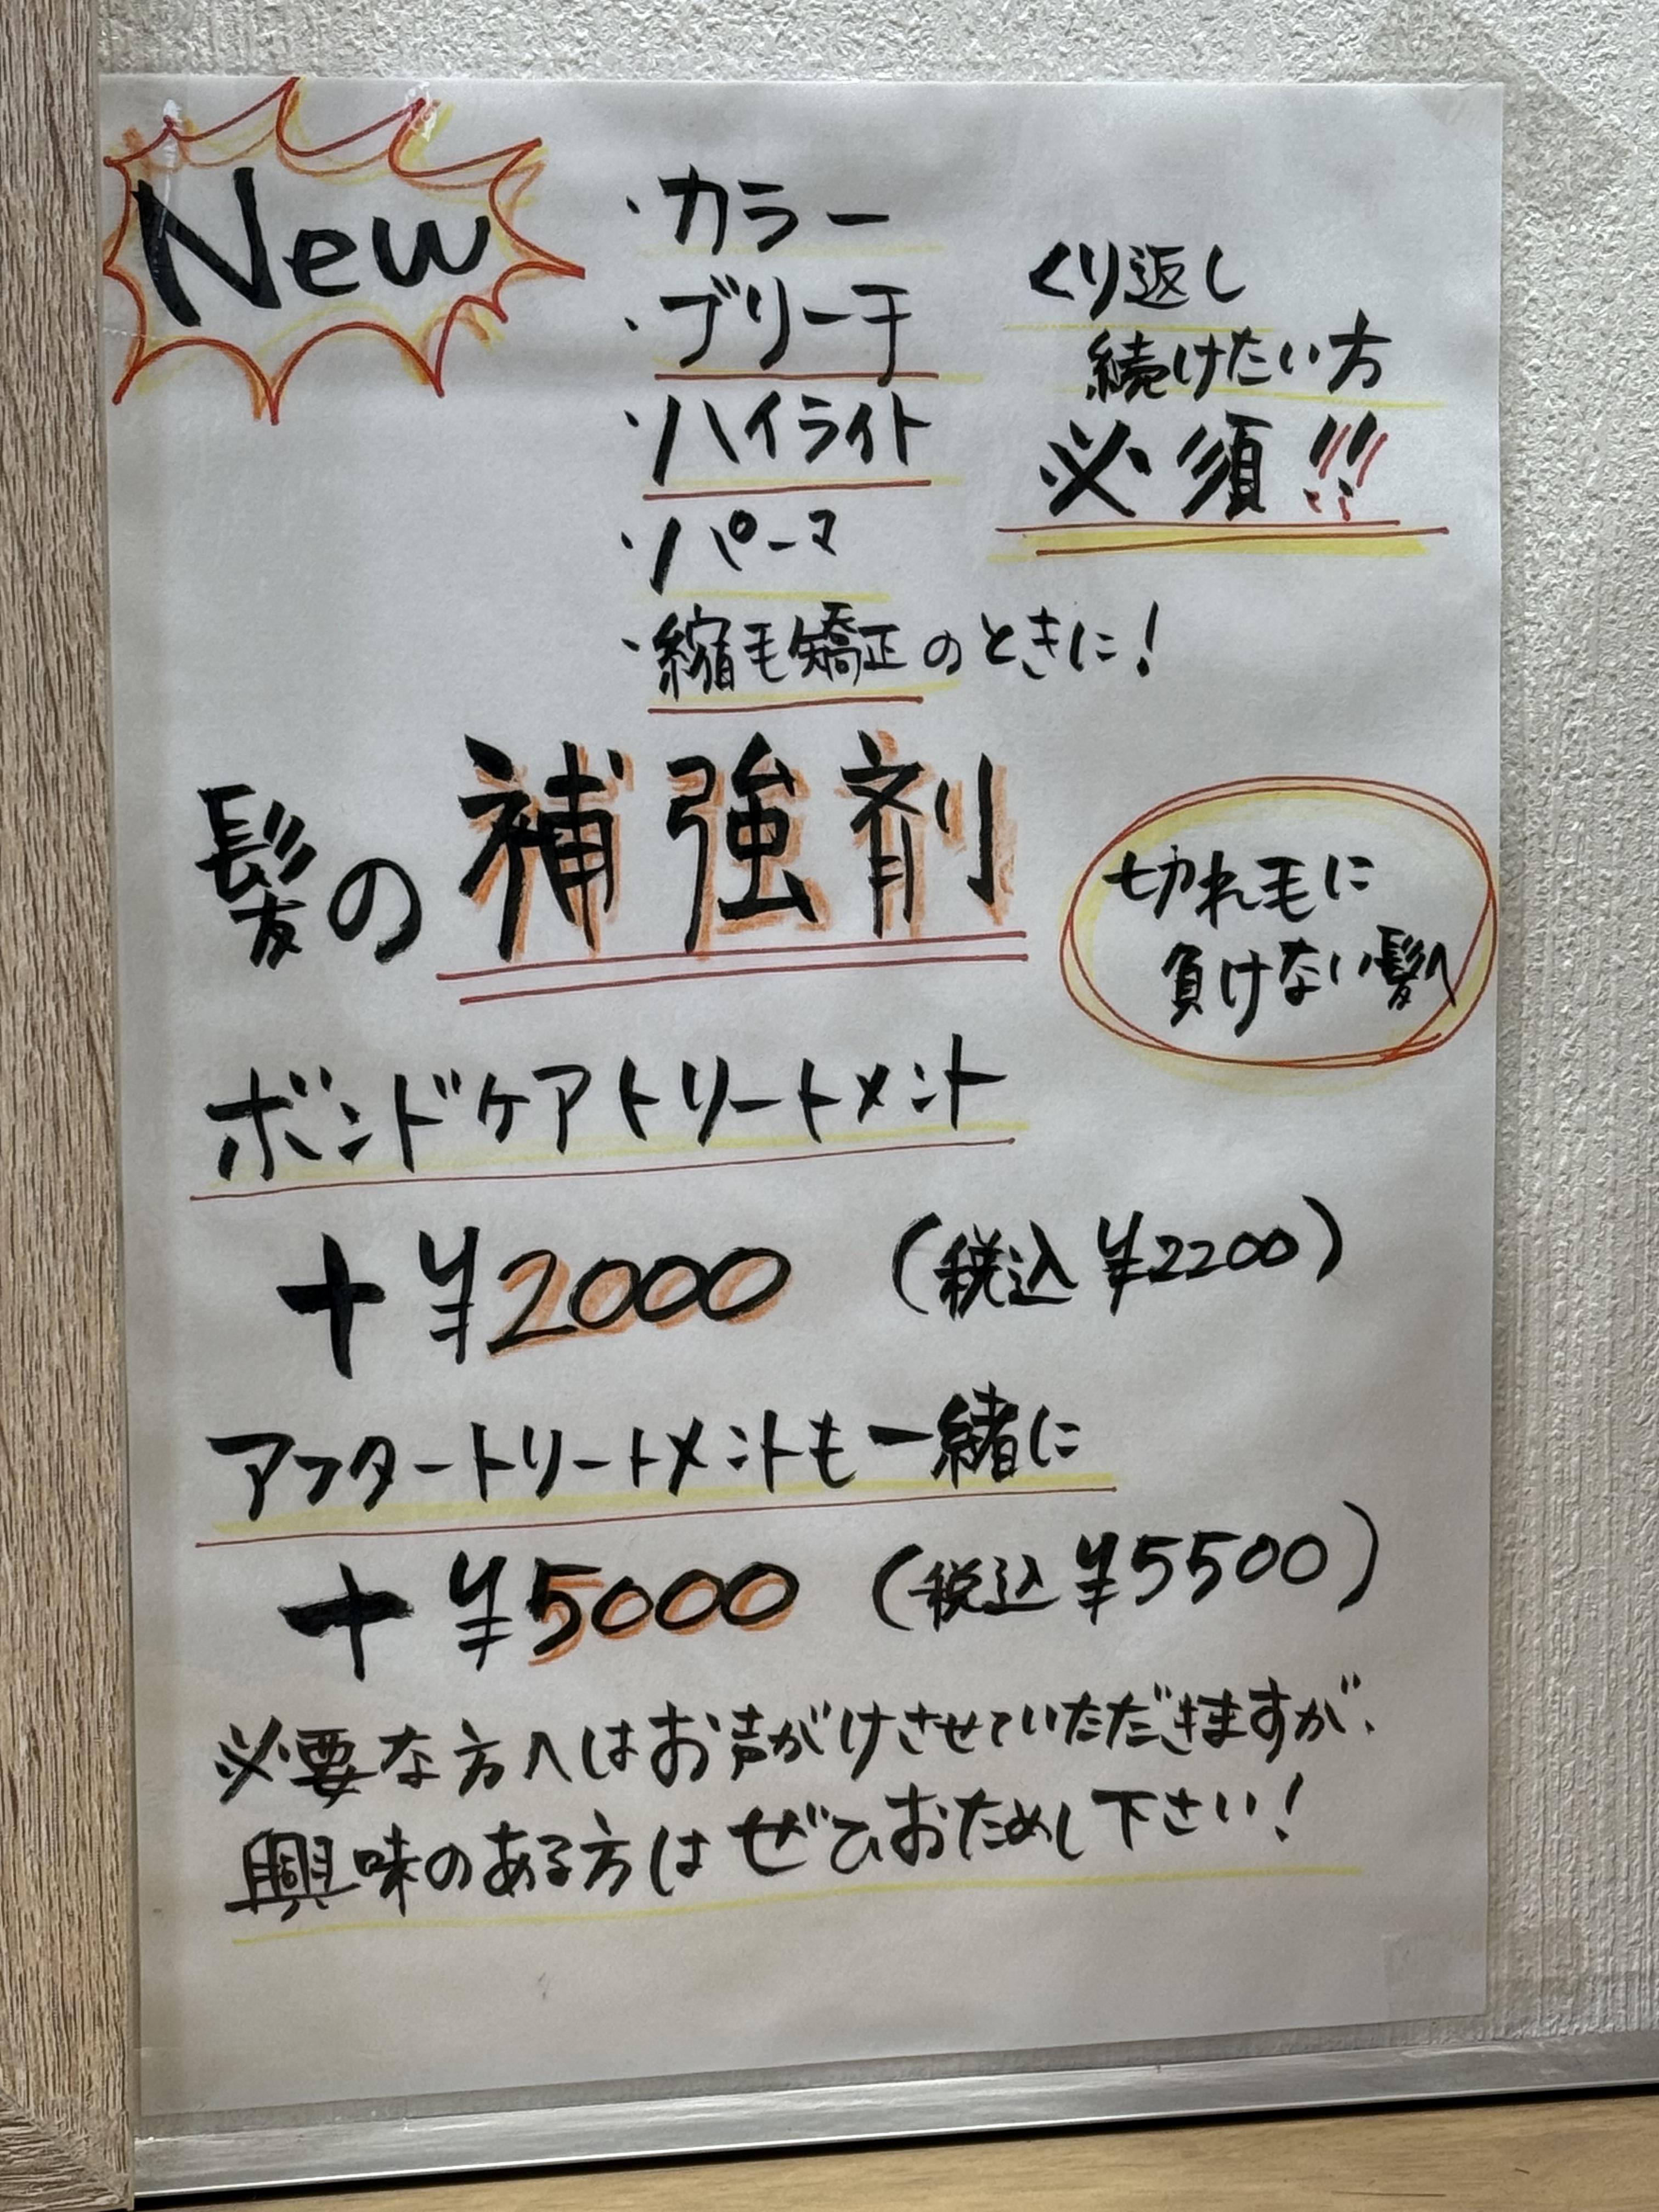 New
・カラー
・ブリーチ
・ハイライト
・パーマ
・縮毛矯正のときに!
くり返し
続けたい方
必須!!
髪の補強剤
切れ毛に
負けない髪へ
ボンドケアトリートメント
+¥2000 (税込¥2200)
アフタートリートメントも一緒に
+¥5000 (税込¥5500)
必要な方へはお声がけさせていただきますが、
興味のある方はぜひおためし下さい!